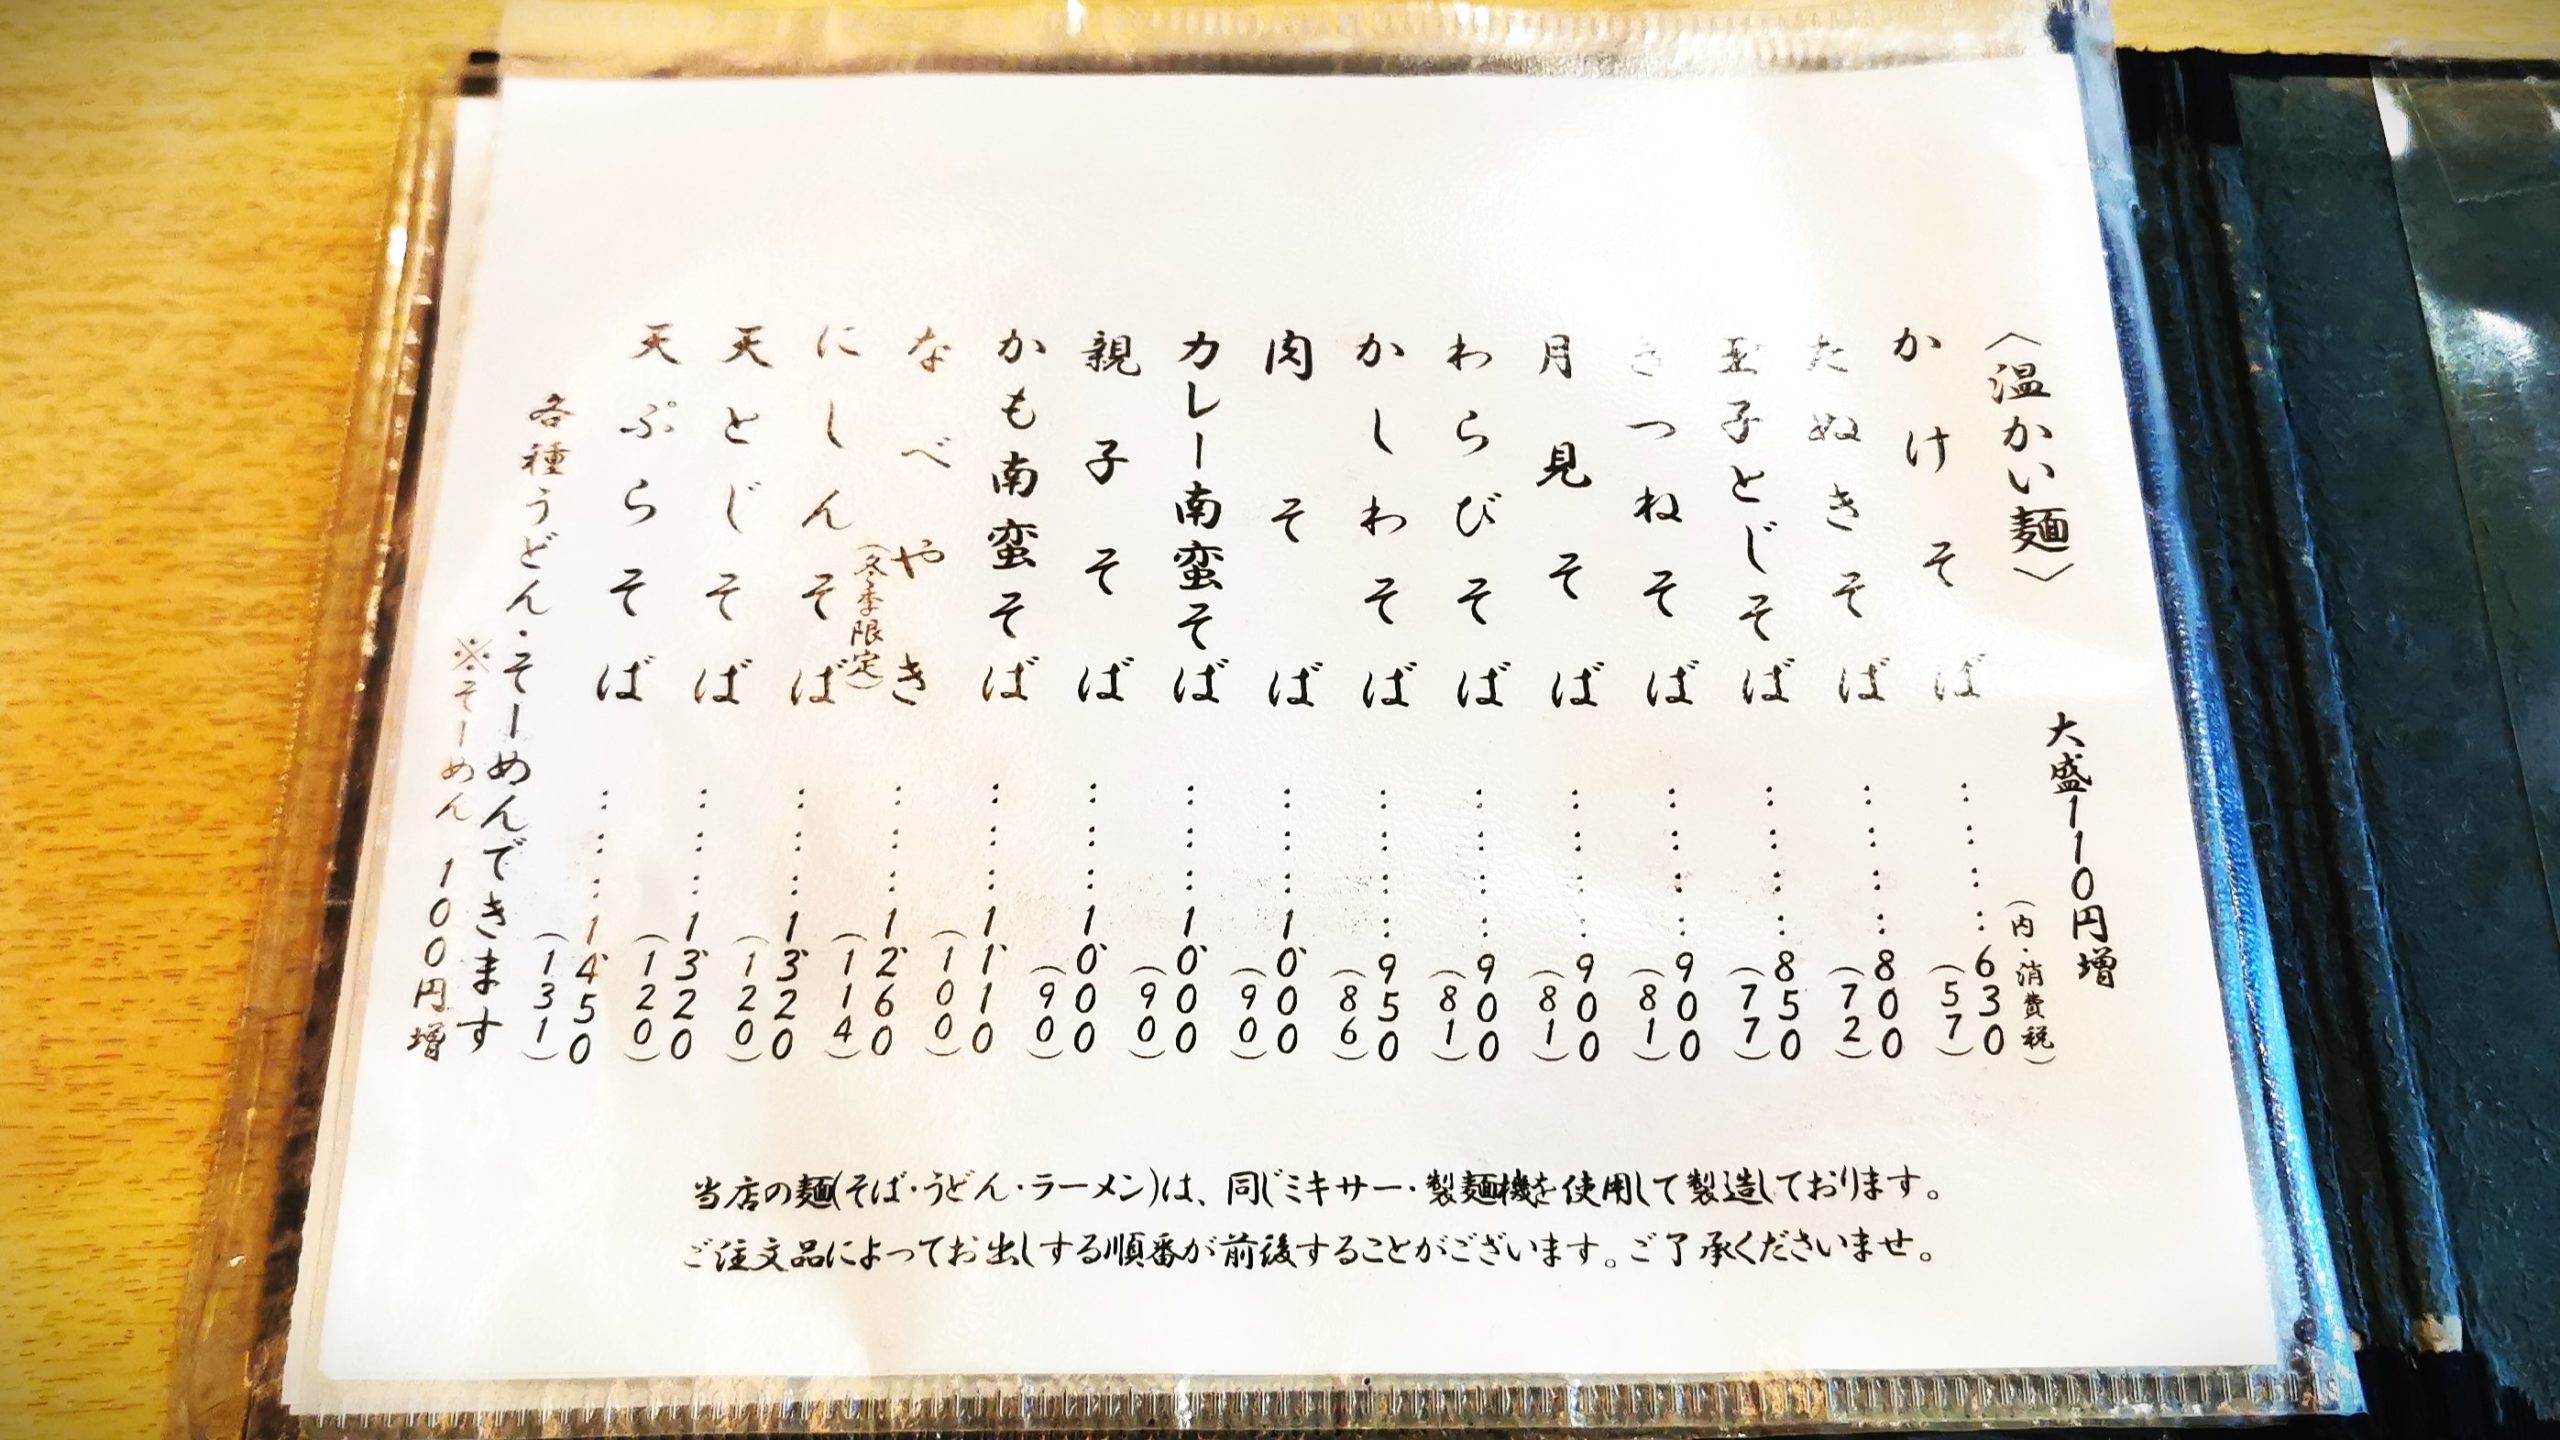 〈温かい麺〉
大盛110円増
(内・消費税)
かけそば……630(57)
たぬきそば……800(72)
玉子とじそば……850(77)
きつねそば……900(81)
月見そば……900(81)
わらびそば……900(81)
かしわそば……950(86)
肉そば……1,000(90)
カレー南蛮そば……1,000(90)
親子そば……1,000(90)
かも南蛮そば……1,110(100)
なべやき(冬季限定)……1,260(114)
にしんそば……1,320(120)
天とじそば……1,320(120)
天ぷらそば……1,450(131)
各種うどん・そーめんできます
※そーめん100円増
当店の麺(そば・うどん・ラーメン)は、同じミキサー・製麺機を使用して製造しております。
ご注文品によってお出しする順番が前後することがございます。ご了承くださいませ。